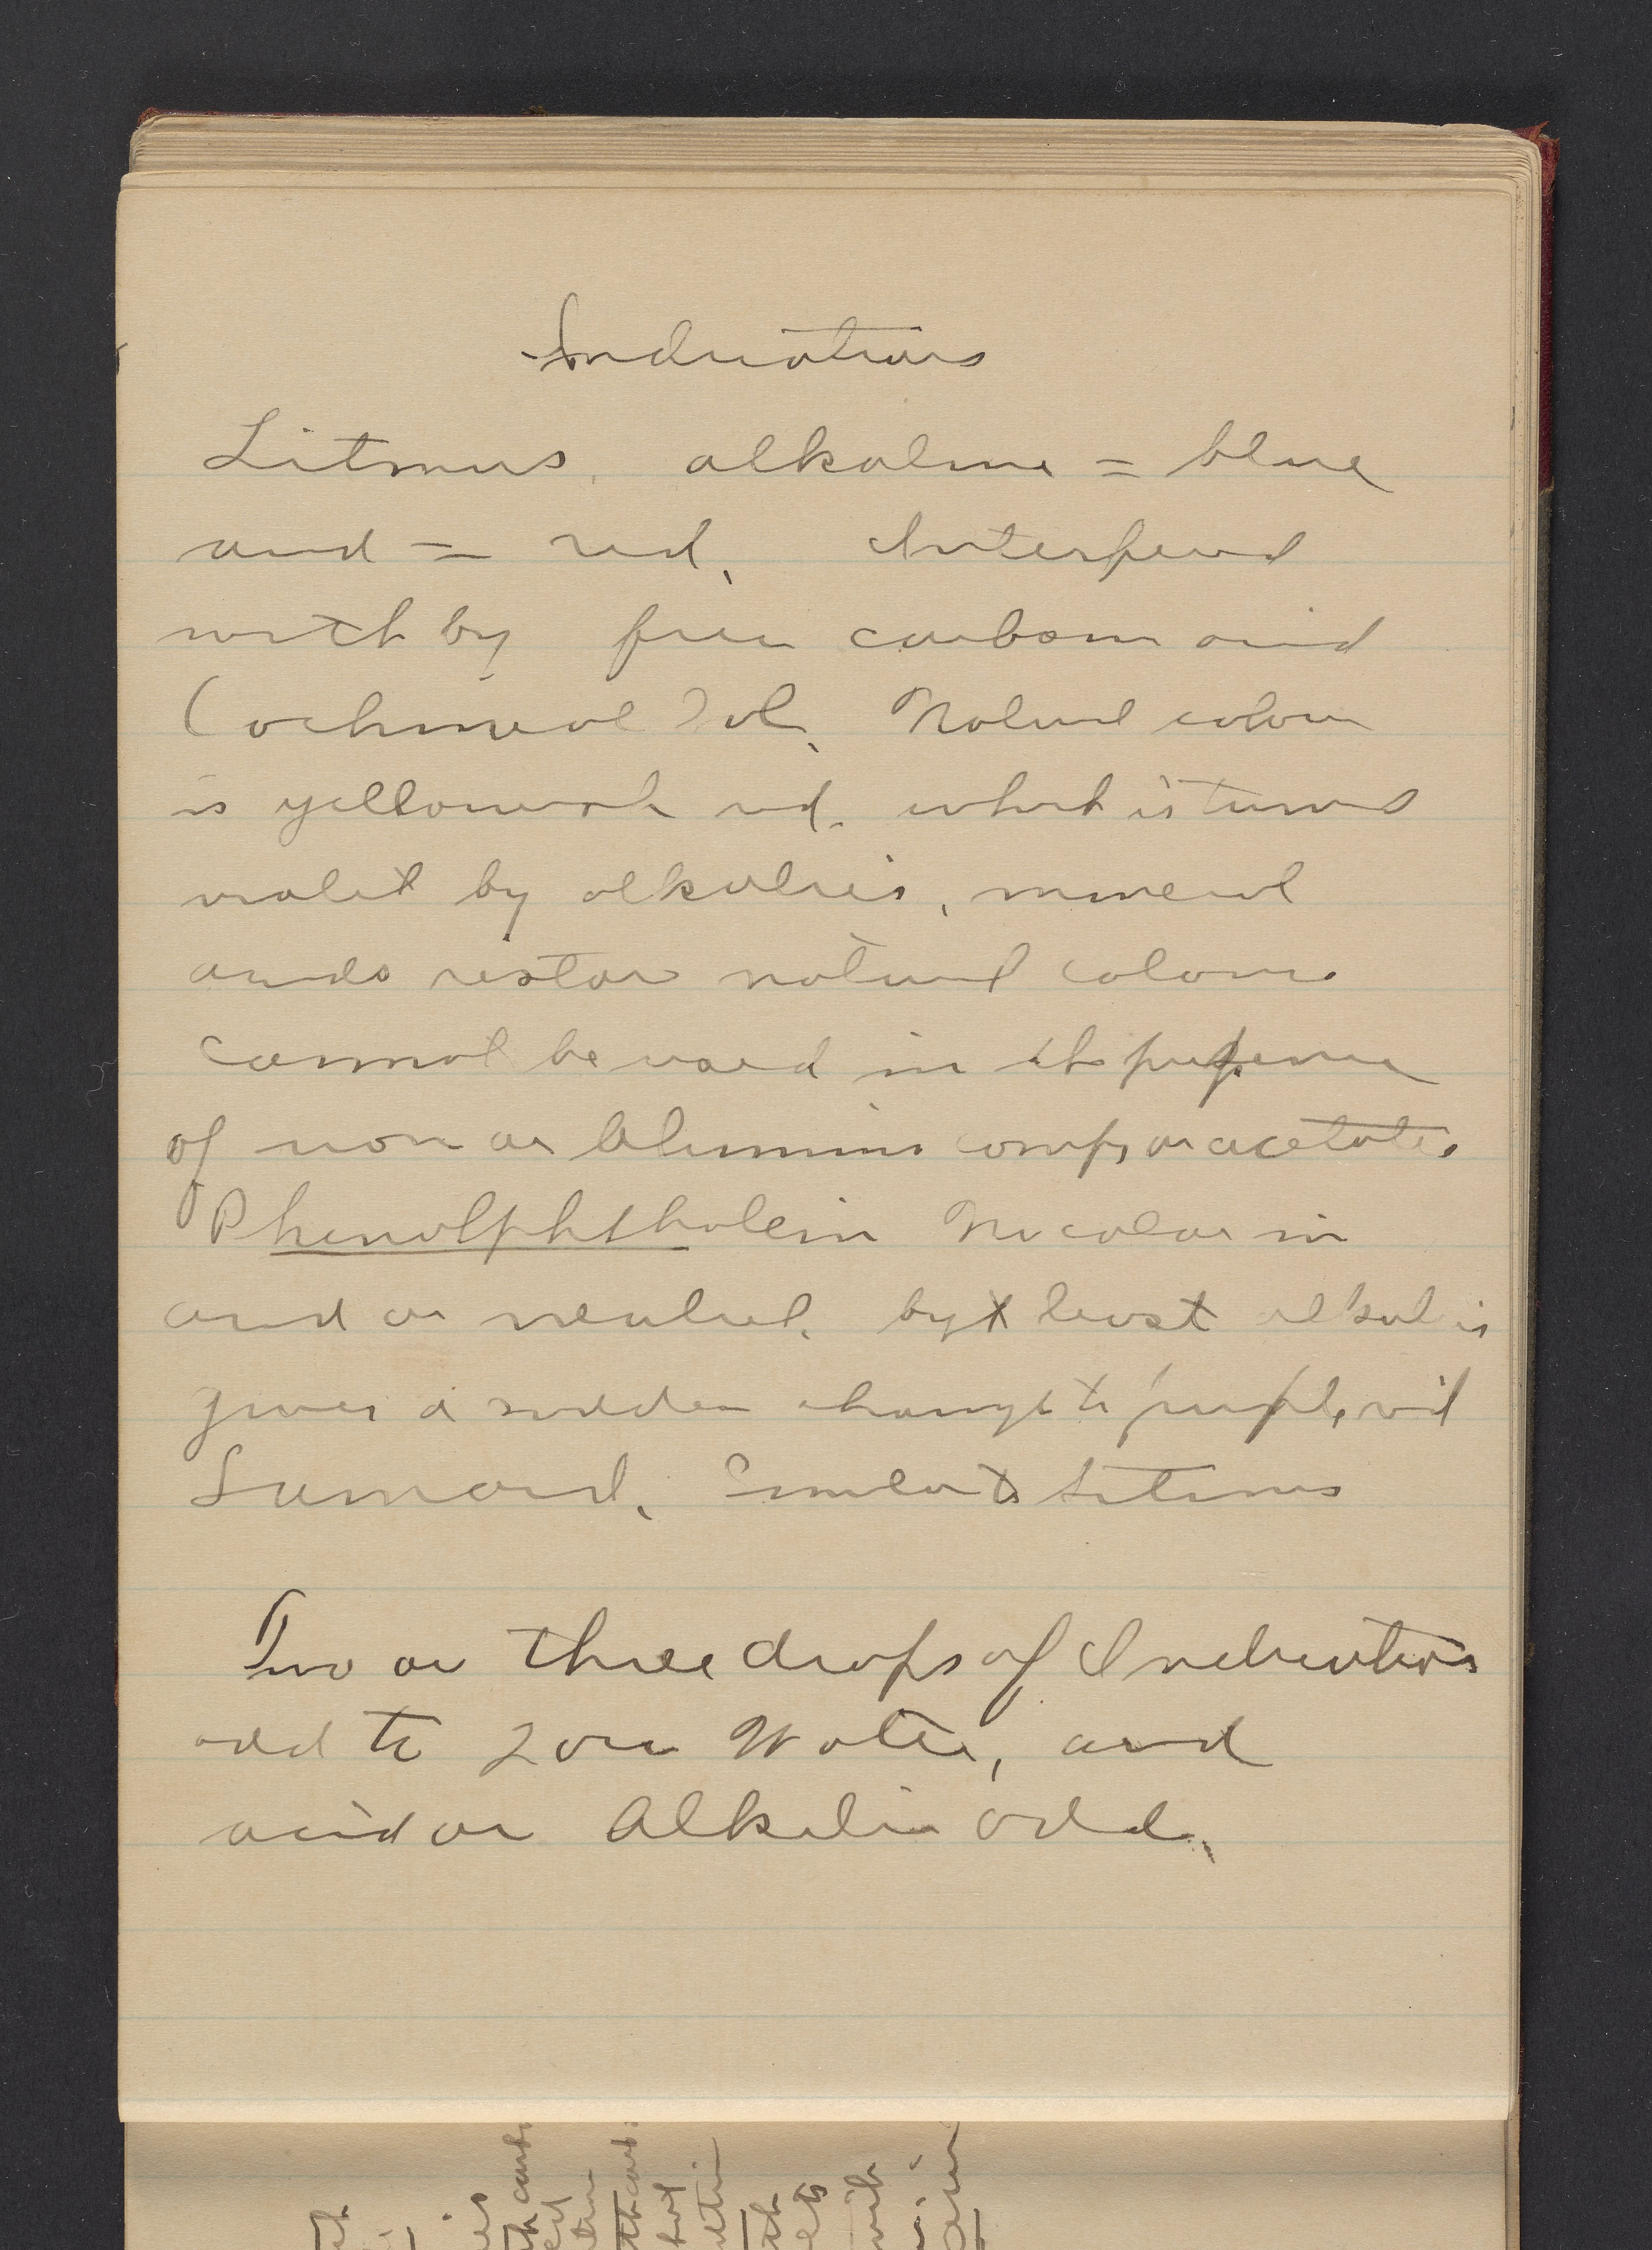 Indicators
Litmus, alkaline = blue
acid = red. Interfered
with by free carbonic acid
Cochineal Sol. Natural colour
is yellowish red. which is turned
violet by alkalies, mineral
acids restore natural colour.
cannot be used in the presence
of iron or Aluminium comps or acetates
Phenolphthalein No color in
acid or neutral. by least alkali
gives a sudden change to purple red
Similar to Litmus
Two or three drops of Indicators
add to Water, and
acid or Alkali add.